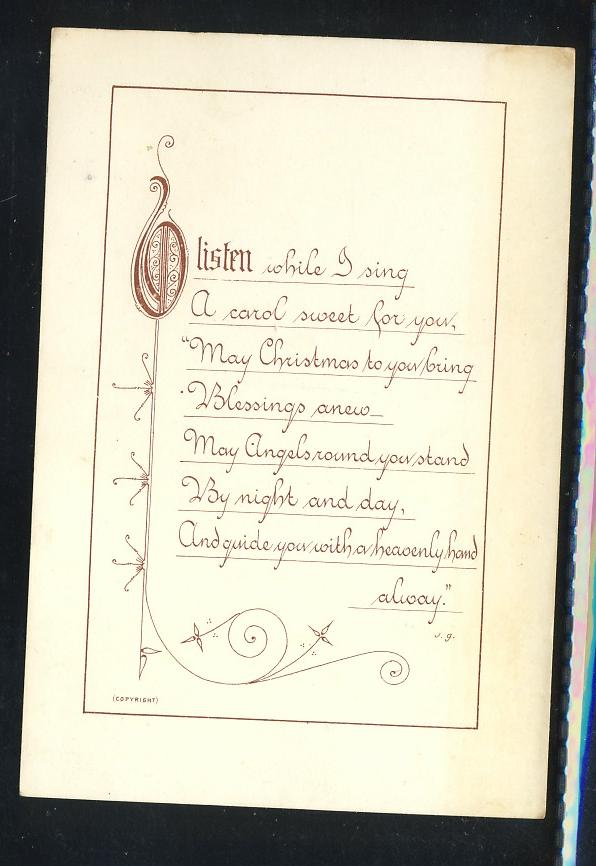 O listen while I sing
A carol sweet for you,
"May Christmas to you bring
Blessings anew
May Angels round you stand
By night and day,
And guide you with a heavenly hand
alway."
J. G.
(COPYRIGHT)